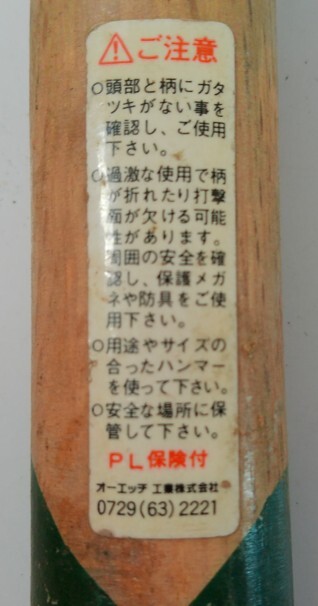 ⚠ご注意
○頭部と柄にガタ
ツキがない事を
確認し、ご使用
下さい。
○過激な使用で柄
が折れたり打撃
面が欠ける可能
性があります。
周囲の安全を確
認し、保護メガ
ネや防具をご使
用下さい。
○用途やサイズの
合ったハンマー
を使って下さい。
○安全な場所に保
管して下さい。
PL保険付
オーエッチ工業株式会社
0729(63)2221